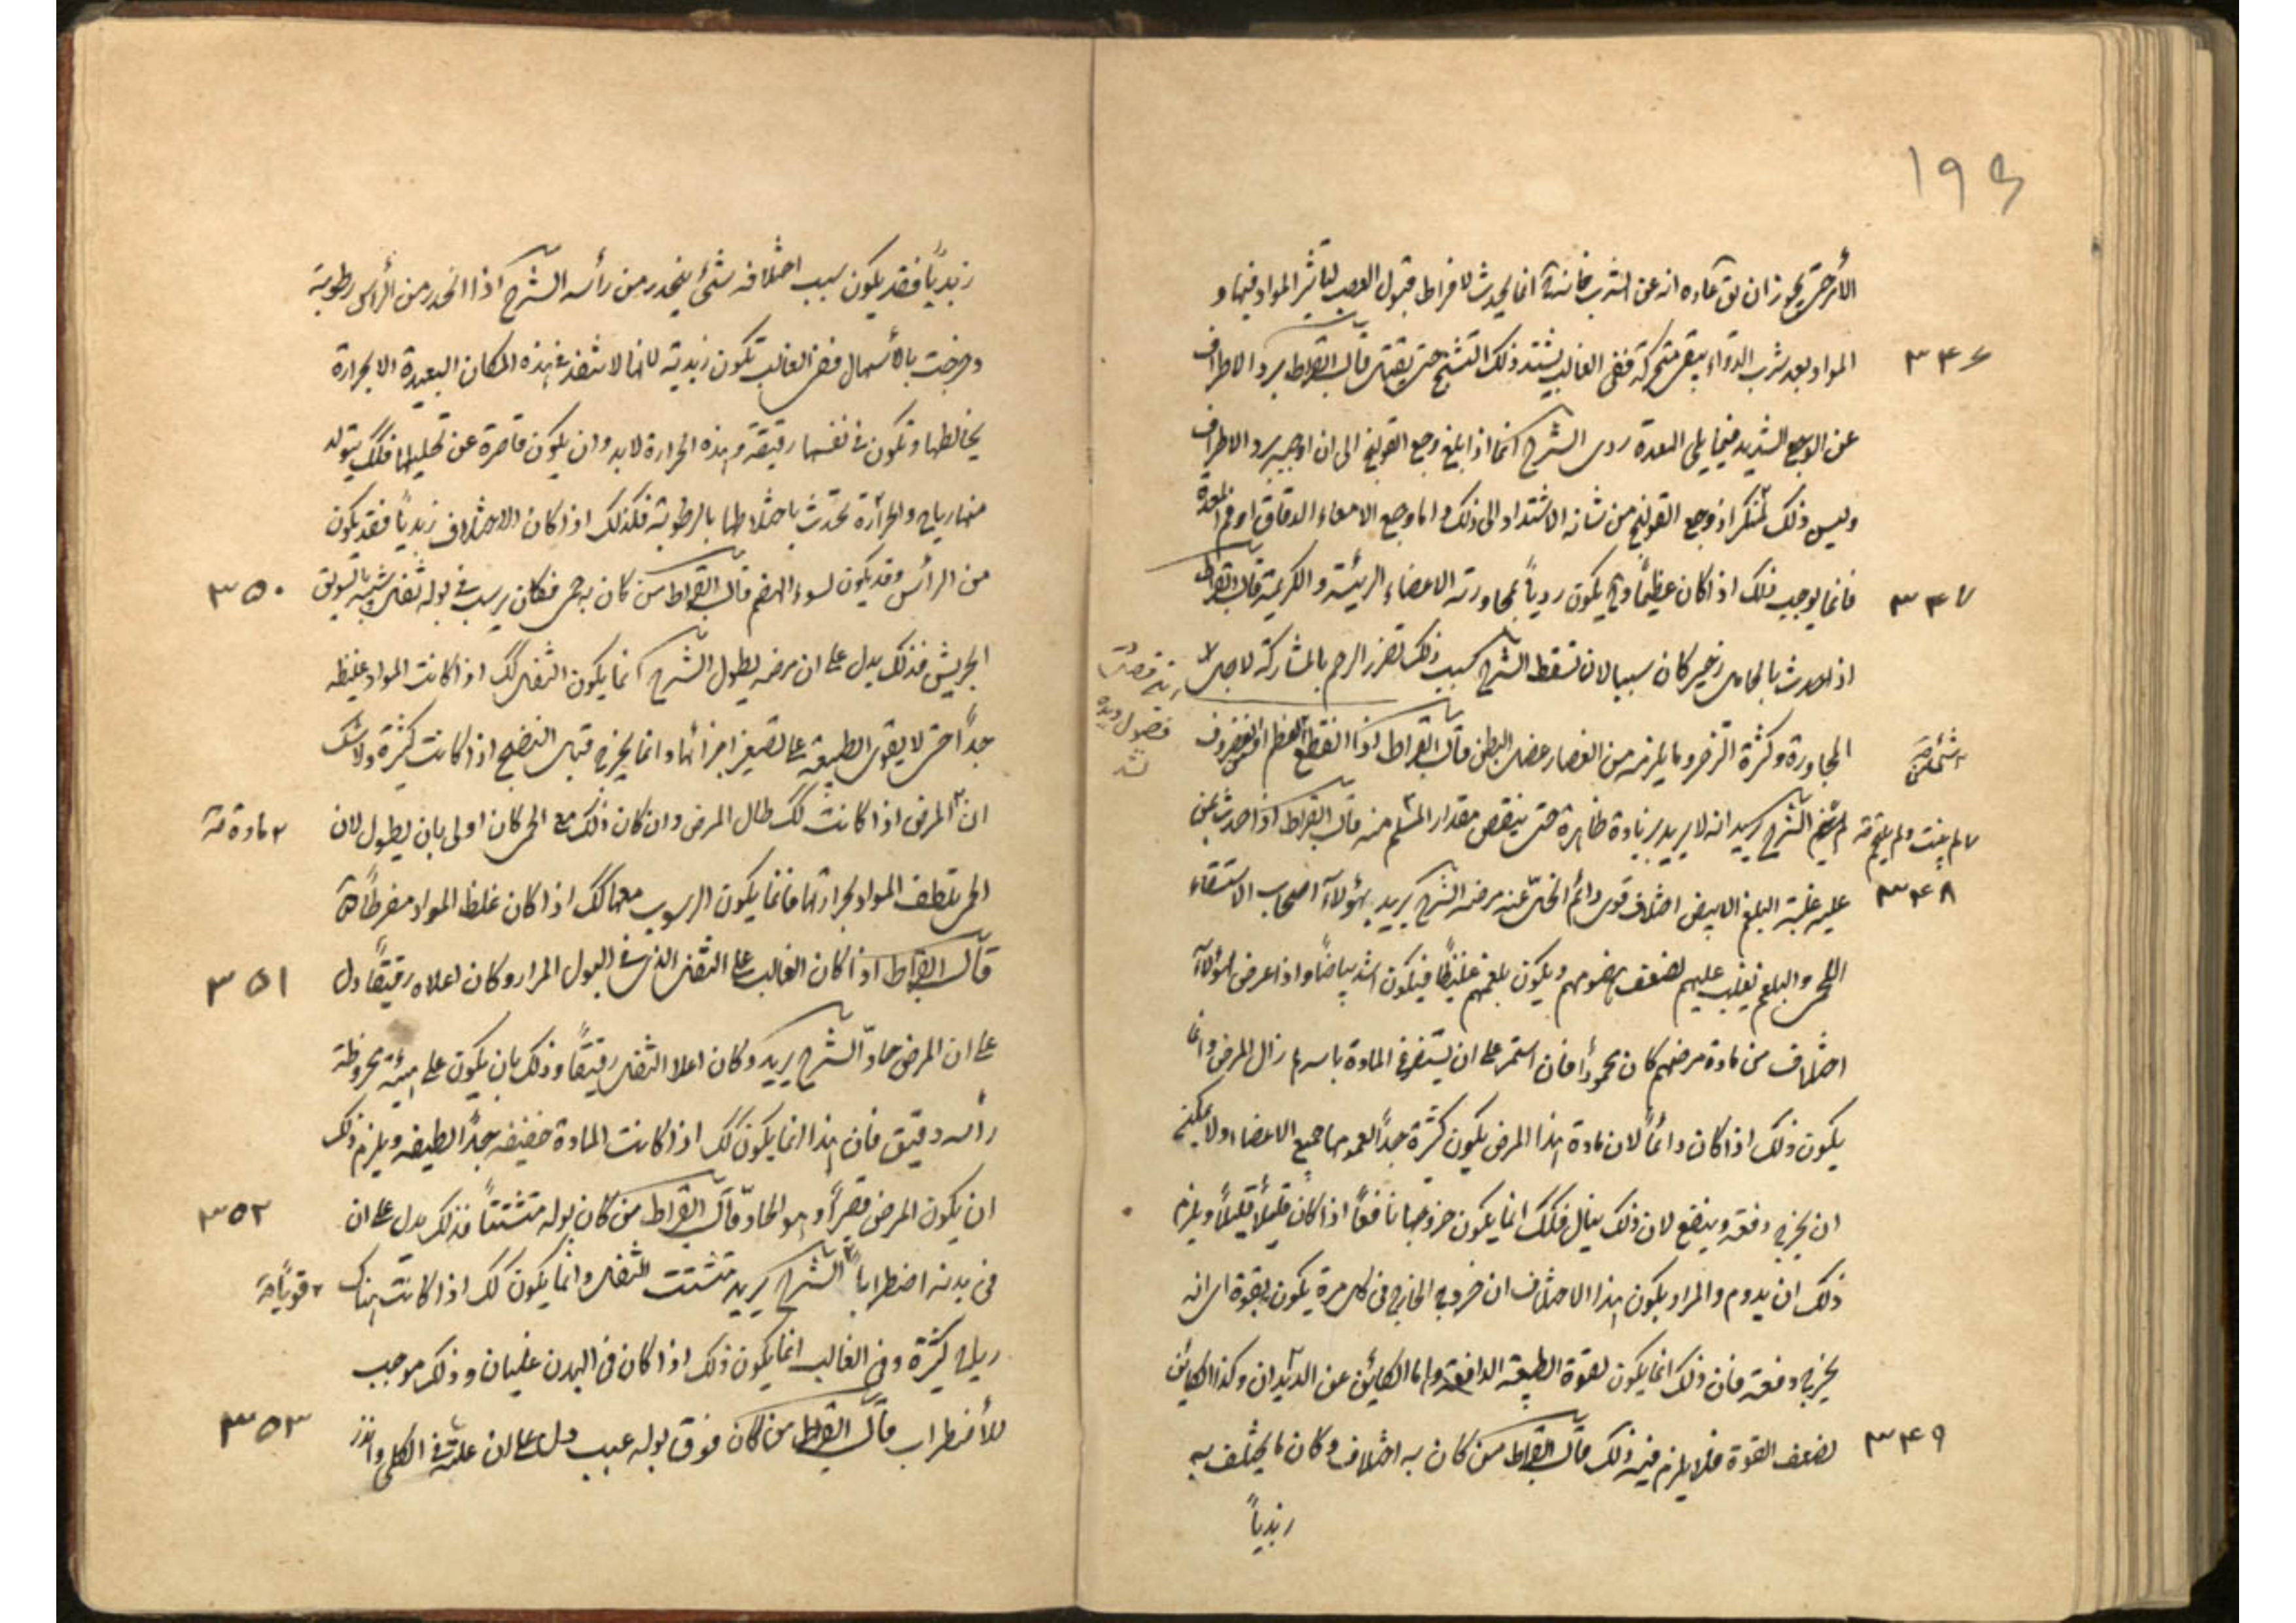 ۱۹۵
المواد بعد شرب الدواء يبقى متحركة ففى الغالب يشتد ذلك التشنج حتى يقتل قال ابقراط برد الاطراف
۳۴۶
عن الوجع الشديد فيما يلى المعدة ردى الشرح انما اذا بلغ وجع القولنج الى ان اوجب برد الاطراف
وليس ذلك بمنكر اذ وجع القولنج من شانه الاشتداد الى ذلك واما وجع الامعاء الدقاق او فم المعدة
فانما يوجب ذلك اذا كان عظيماً وح يكون ردياً لمجاورته الاعضاء الرئيسة والكريمة قال ابقراط
۳۴۷
اذا حدث بالحامل زحير كان سببا لان تسقط الشرح سبب ذلك تضرر الرحم بالمشاركة لاجل
المجاورة وكثرة التزحر وما يلزمه من انعصار عضل البطن قال ابقراط اذا انقطع العظم او الغضروف
لم ينم الشرح يريد انه لا يزيد زيادة ظاهرة حتى ينقص مقدار المنثلم منه قال ابقراط اذا حدث بمن
لم ينبت ولم يلتحم
۳۴۸
عليه غلبة البلغم الابيض اختلاف قوى دائم انحل عنه مرضه الشرح يريد بهؤلاء اصحاب الاستسقاء
اللحمى والبلغم يغلب عليهم لضعف هضومهم ويكون بلغمهم غليظاً فيكون اشد بياضاً واذا عرض لهؤلاء
اختلاف من مادة مرضهم كان محموداً فان استمر على ان يستفرغ المادة باسرها زال المرض وانما
يكون ذلك اذا كان دائماً لان مادة هذا المرض يكون كثيرة جداً لعمومها جميع الاعضاء ولا يمكن
ان يخرج دفعة وينفع لان ذلك قتال فكك انما يكون خروجها نافعاً اذا كان قليلاً قليلاً ويلزم
ذلك ان يدوم والمراد بكون هذا الاختلاف ان خروج الخارج فى كل مرة يكون بقوة اى انه
يخرج دفعة فان ذلك انما يكون لقوة الطبيعة الدافعة واما الكائن عن الديدان وكذا الكائن
لضعف القوة فلا يلزم فيه ذلك قال ابقراط من كان به اختلاف وكان ما يختلف به
۳۴۹
زبدياً
زبدياً فقد يكون سبب اختلافه شئ ينحدر من رأسه الشرح اذا انحدر من الرأس رطوبة
وخرجت بالأسهال ففى الغالب تكون زبدية لانها لا تنفذ فى هذه المكان البعيدة الا بحرارة
يخالطها وتكون فى نفسها رقيقة وهذه الحرارة لابد وان يكون قاصرة عن تحليلها فكك يتولد
منها رياح والحرارة تحدث باختلاطها بالرطوبة فكذلك اذا كان الاختلاف زبدياً فقد يكون
من الرأس وقد يكون لسوء الهضم قال ابقراط من كان به حمى فكان يرسب فى بوله ثفل شبيه بالسويق
۳۵۰
الجريش فذلك يدل على ان مرضه يطول الشرح انما يكون الثفل كك اذا كانت المواد غليظة
جداً حتى لا يقوى الطبيعة على تصغير اجزائها وانما يخرج قبل النضج اذا كانت كثيرة ولا شك
ان المرض اذا كانت كك طال المرض وان كان ذلك مع الحمى كان اولى بان يطول لان
مادة
الحمى يلطف المواد بحرارتها فانما يكون الرسوب معها كك اذا كان غلظ المواد مفرطاً
قال ابقراط اذا كان الغالب على الثفل الذى فى البول المرار وكان اعلاه رقيقاً دل
۳۵۱
على ان المرض حاد الشرح يريد وكان اعلا الثفل رقيقاً وذلك بان يكون على هيئة مخروطة
رأسه دقيق فان هذا انما يكون كك اذا كانت المادة خفيفة جداً لطيفة ويلزم ذلك
ان يكون المرض قصيراً وهو الحاد قال ابقراط من كان بوله متشتتاً فذلك يدل على ان
۳۵۲
فى بدنه اضطراباً الشرح يريد متشتت الثفل وانما يكون كك اذا كانت هناك
قوياً
رياح كثيرة وفى الغالب انما يكون ذلك اذا كان فى البدن غليان وذلك موجب
للأضطراب قال ابقراط من كان فوق بوله عبب دل على ان علته فى الكلى وانذر
۳۵۳